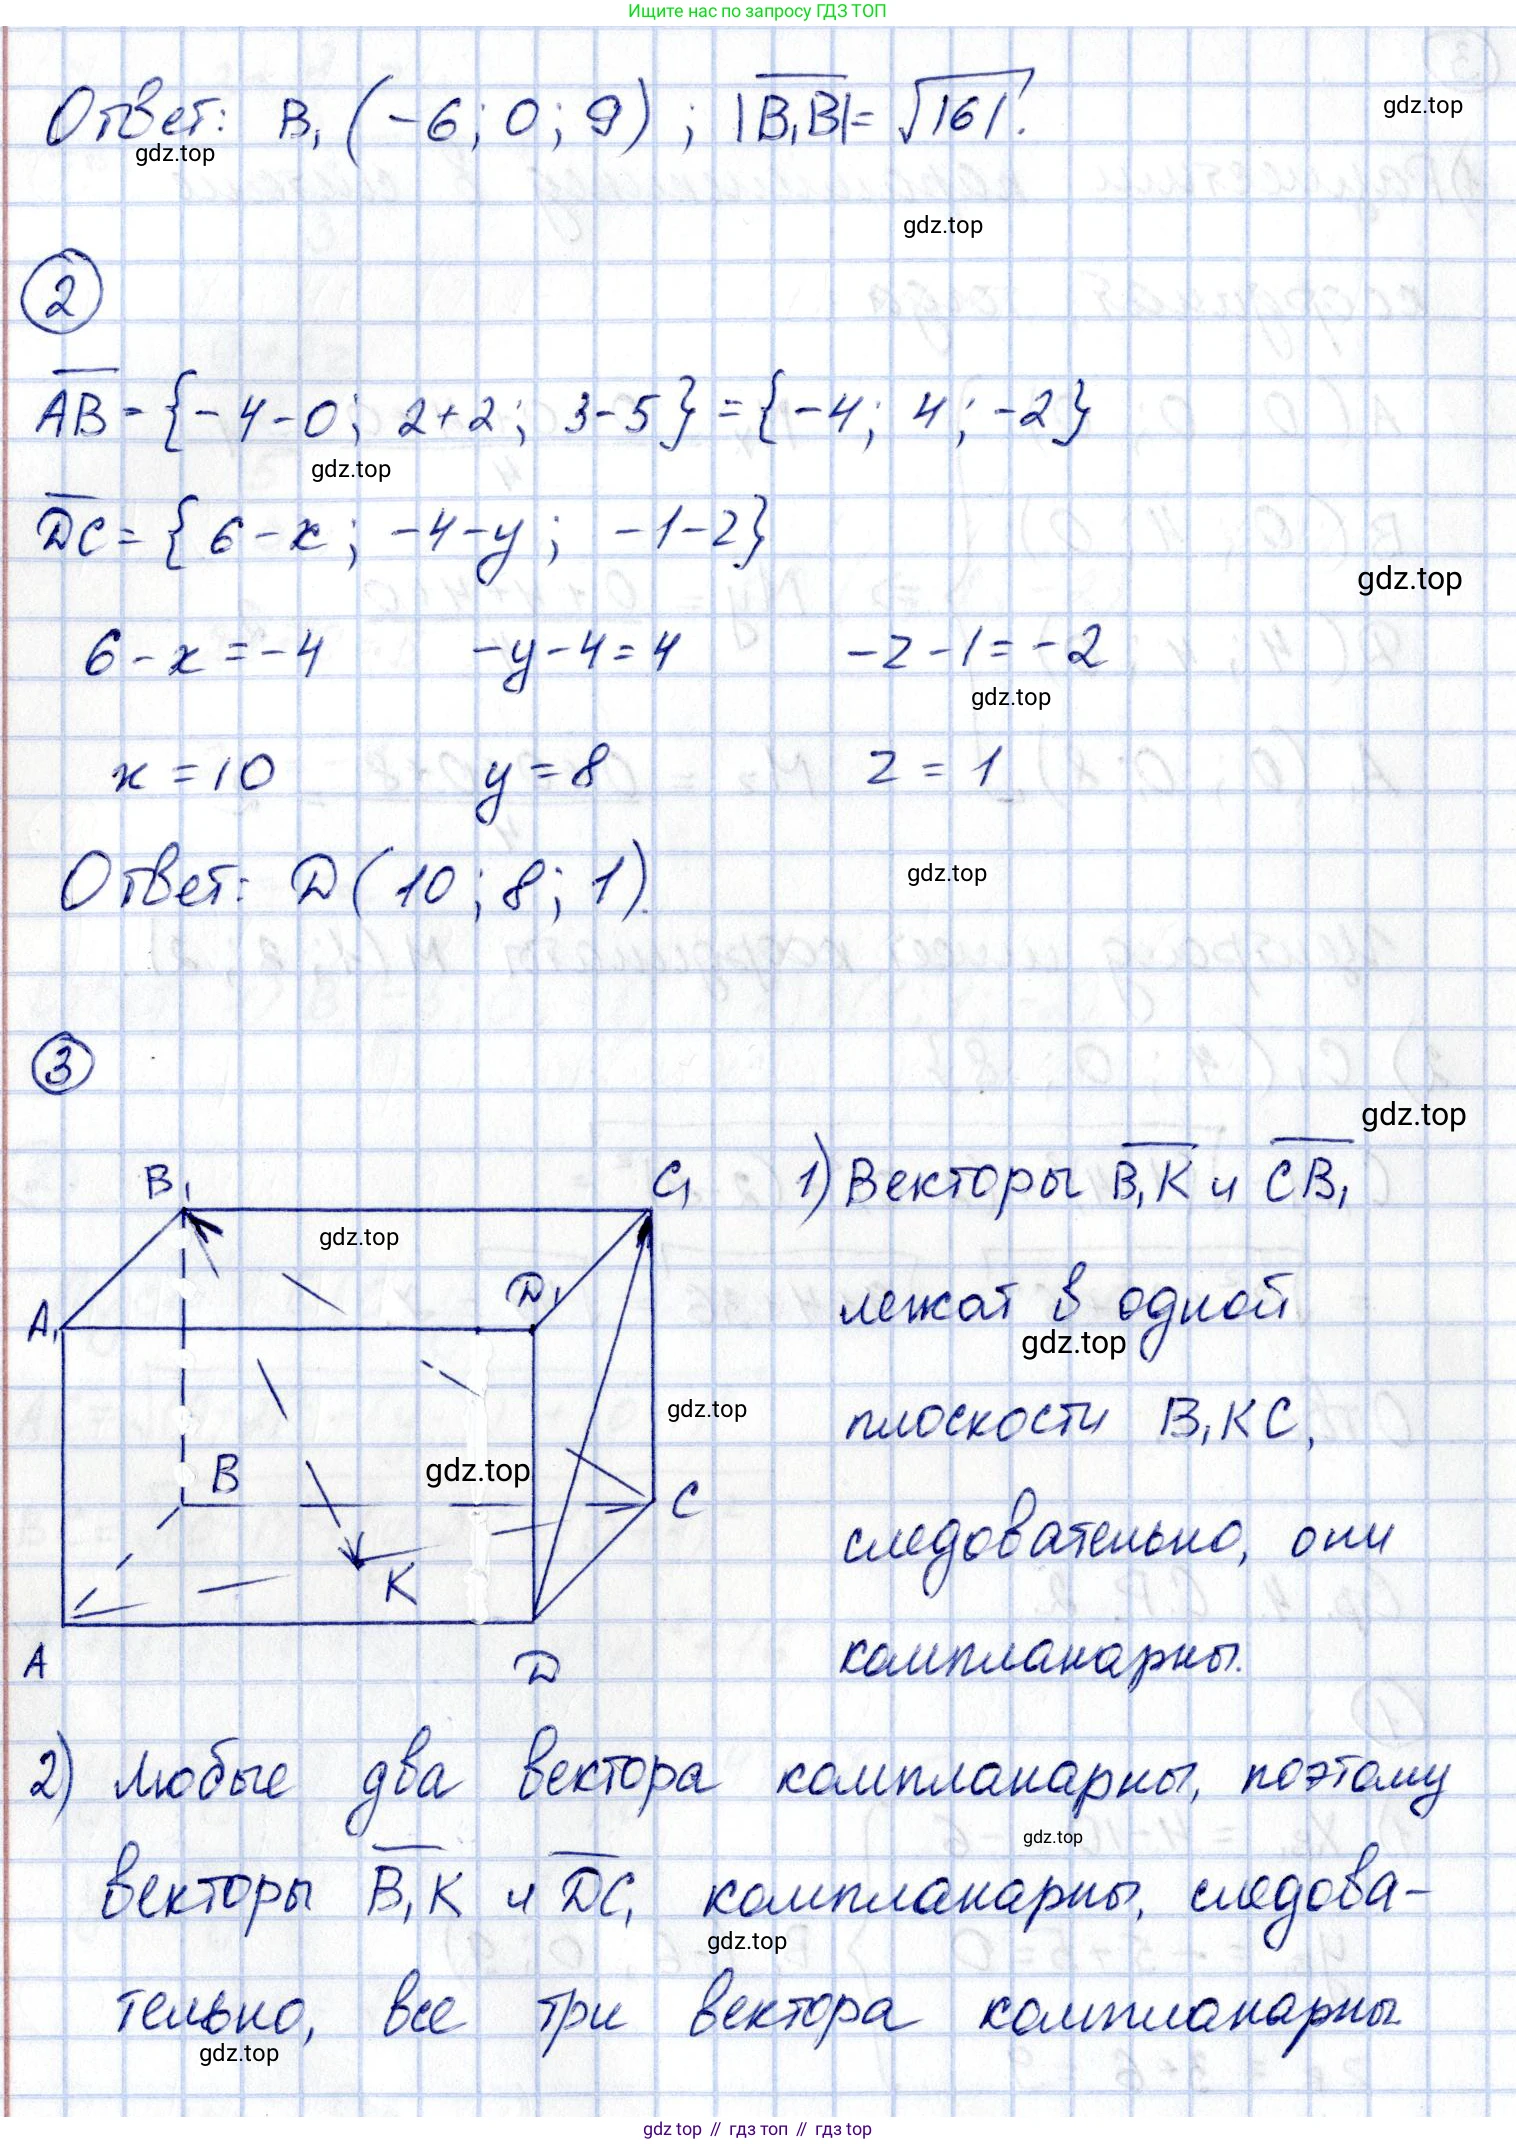 Ищите нас по запросу ГДЗ ТОП
Ответ: B₁ (-6; 0; 9) ; |B₁B| = √161.
gdz.top
gdz.top
gdz.top
2
AB = {-4-0; 2+2; 3-5} = {-4; 4; -2}
gdz.top
DC = {6-x; -4-y; -1-z}
gdz.top
6-x=-4 -y-4=4 -z-1=-2
gdz.top
x=10 y=8 z=1
Ответ: D(10; 8; 1).
gdz.top
3
gdz.top
B₁ C₁ 1) Векторы B₁K и CB₁
gdz.top
A₁ D₁ лежат в одной
gdz.top
gdz.top
плоскости B₁KC,
B gdz.top C
следовательно, они
K
компланарны.
A D
2) Любые два вектора компланарны, поэтому
gdz.top
векторы B₁K и DC₁ компланарны, следова-
gdz.top
тельно, все три вектора компланарны.
gdz.top
gdz.top // гдз топ // гдз top